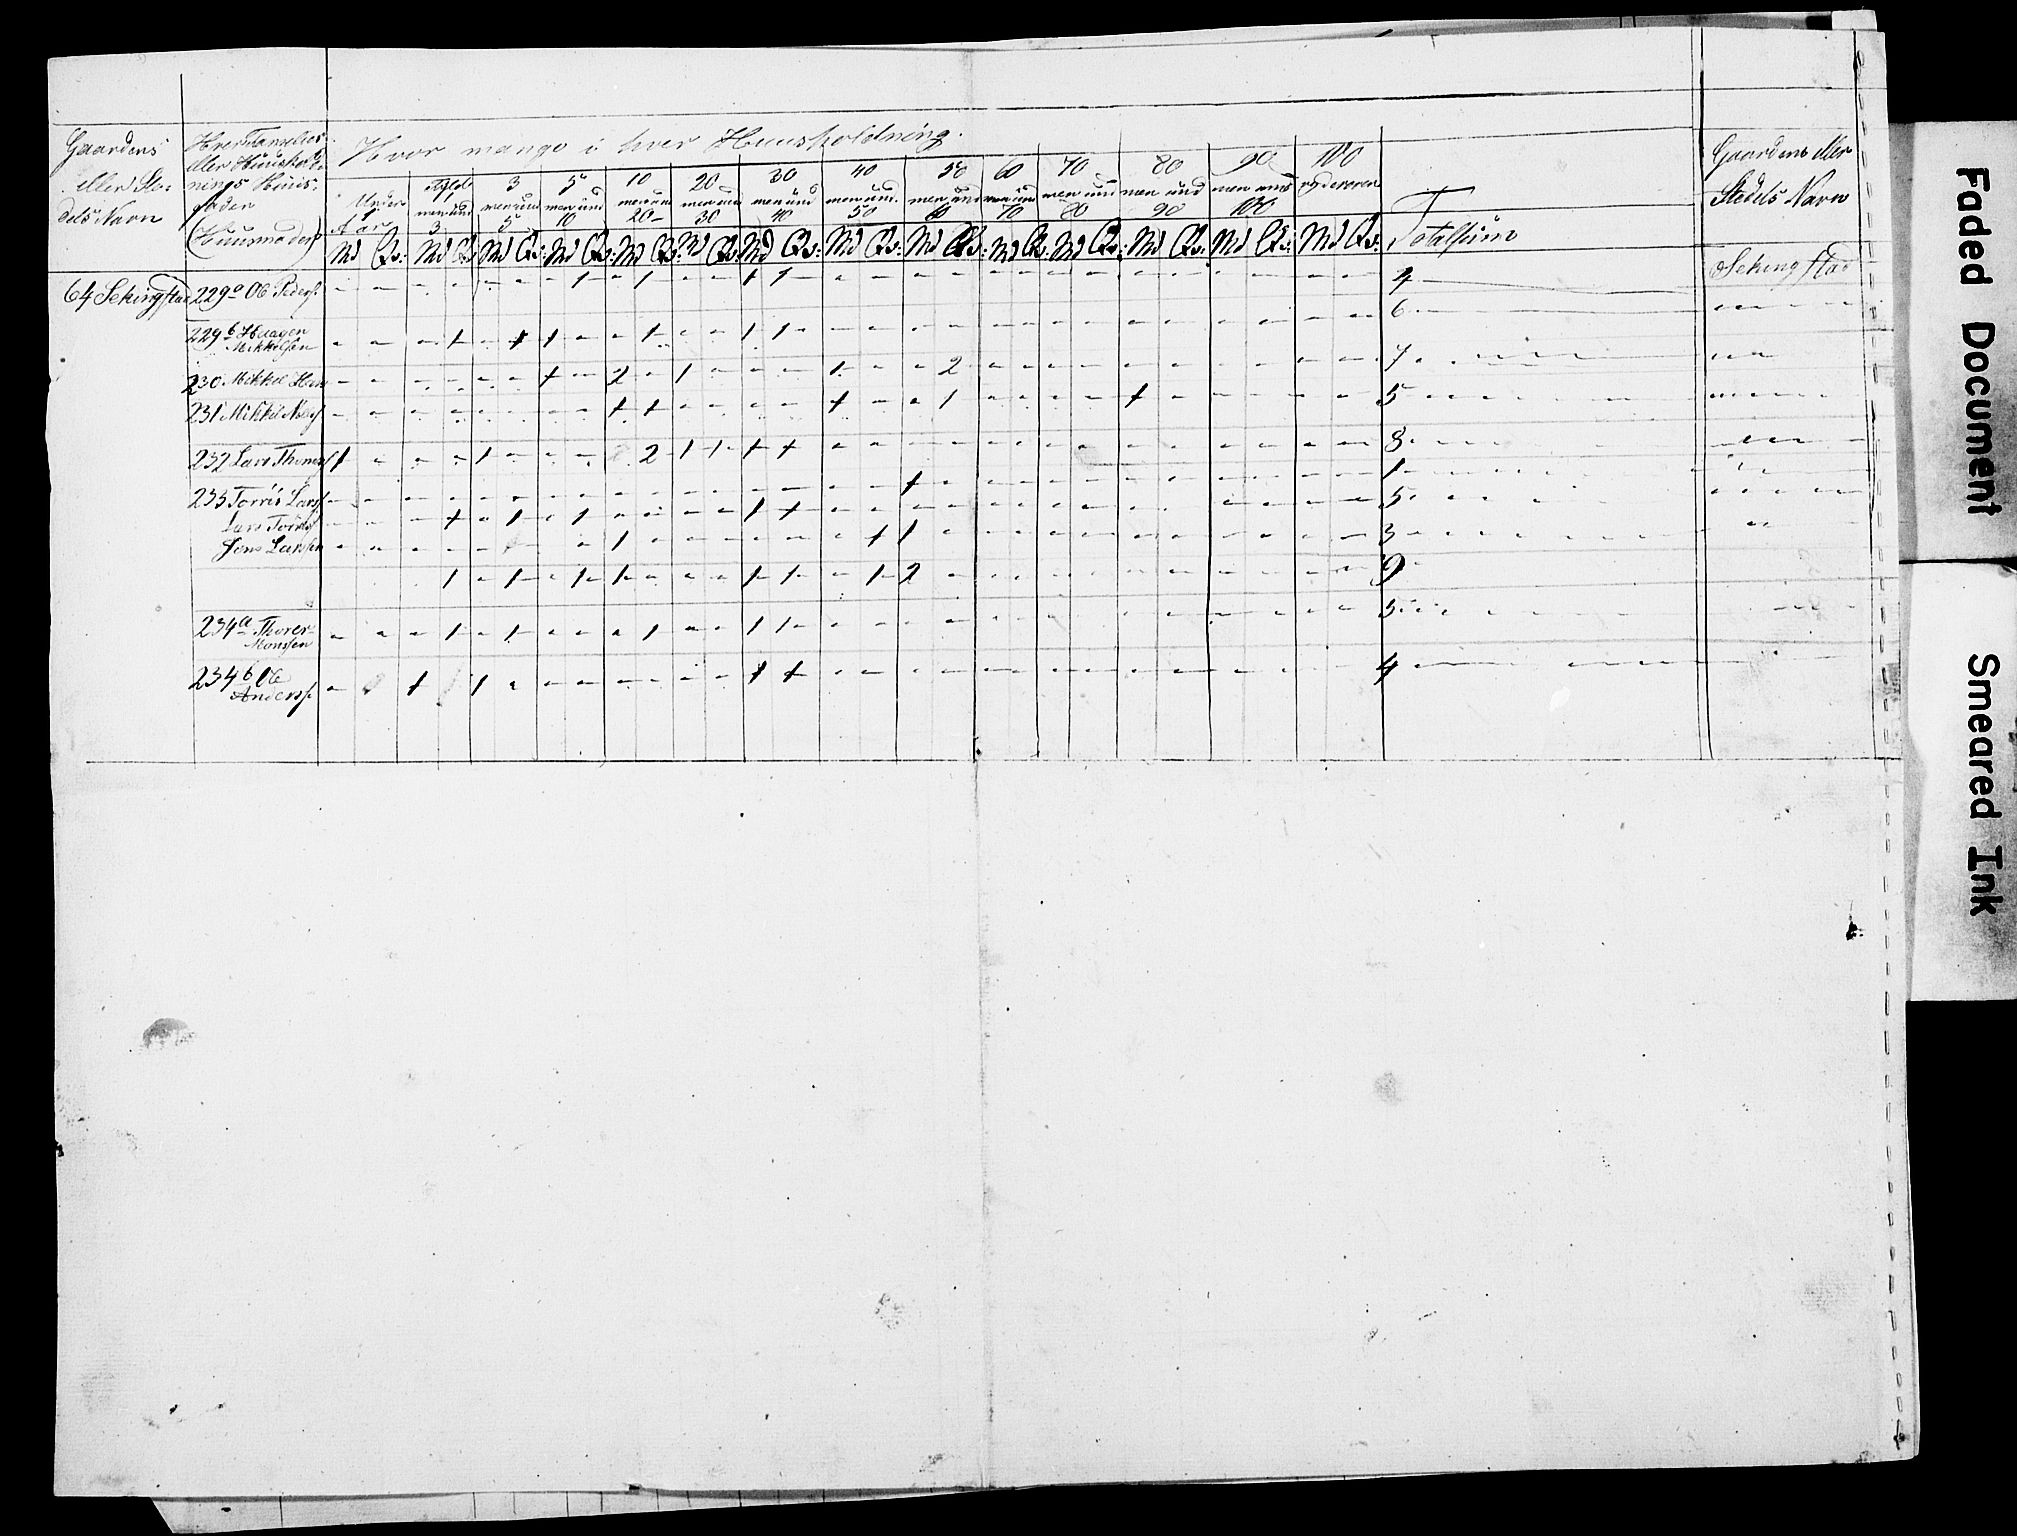 Gaardens eller Stedets Navn
Hver Families eller Huusholdnings Huusfader (Huusmoder)
Hvor mange i hver Huusholdning.
Under 1 Aar
Fyldt 1 men und 3
3 men und 5
5 men und 10
10 men und 20
20 men und 30
30 men und 40
40 men und. 50
50 men und 60
60 men und 70
70 men und 80
80 men und 90
90 men und 100
100 og derover
Totalsum
Gaardens eller Stedets Navn
Md Qv: Md Qv: Md Qv: Md Qv: Md Qv: Md Qv: Md Qv: Md Qv: Md Qv: Md Qv: Md Qv: Md Qv: Md Qv: Md Qv:
64 Sekingstad 229a Ole Peders. 1 1 1 1 4 Sekingstad
229b Haagen Mikkelsen 1 1 1 1 1 1 6
230 Mikkel 1 2 1 1 2 7
231 Mikkel 1 1 1 1 1 5
232 Lars 1 1 2 1 1 1 1 8
233 Torris Lars. 1 1
Lars 1 1 1 1 1 5
Jens Larssen 1 1 1 3
1 1 1 1 1 1 1 2 9
234a Thorer Monssen 1 1 1 1 1 5
234b Ole Anders. 1 1 1 1 4
Faded Document
Smeared Ink